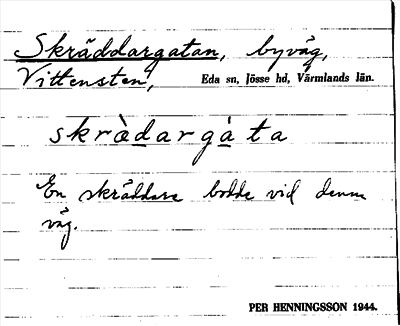 Skräddargatan, byväg,
Vittensten, Eda sn, Jösse hd, Värmlands län.
skràdargàta
En skräddare bodde vid denna
väg.
PER HENNINGSSON 1944.